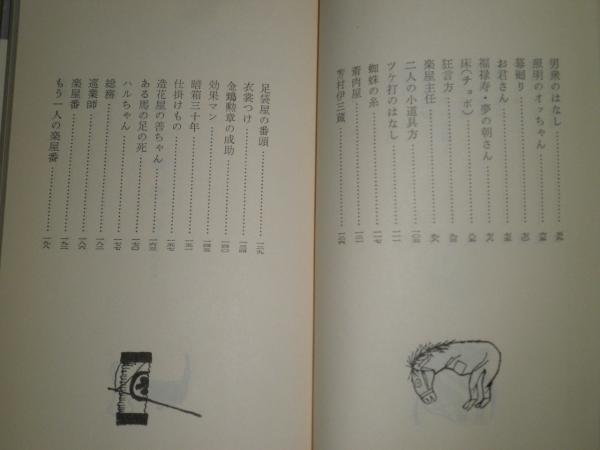 男衆のはなし
照明のオッちゃん
幕廻り
お君さん
福禄寿・夢の朝さん
床(チョボ)
狂言方
楽屋主任
二人の小道具方……一〇五
ツケ打のはなし……一一一
蜘蛛の糸……一一七
肉屋……一二一
芳村伊三蔵……一二六
足袋屋の番頭……一二九
衣裳つけ……一三四
金鵄勲章の成助……一四〇
効果マン……一四五
暗箱三十年……一五一
仕掛けもの……一五七
造花屋の善ちゃん……一六三
ある馬の足の死……一七〇
ハルちゃん……一七七
総務……一八二
巡業師……一八六
楽屋番……一九二
もう一人の楽屋番……一九八